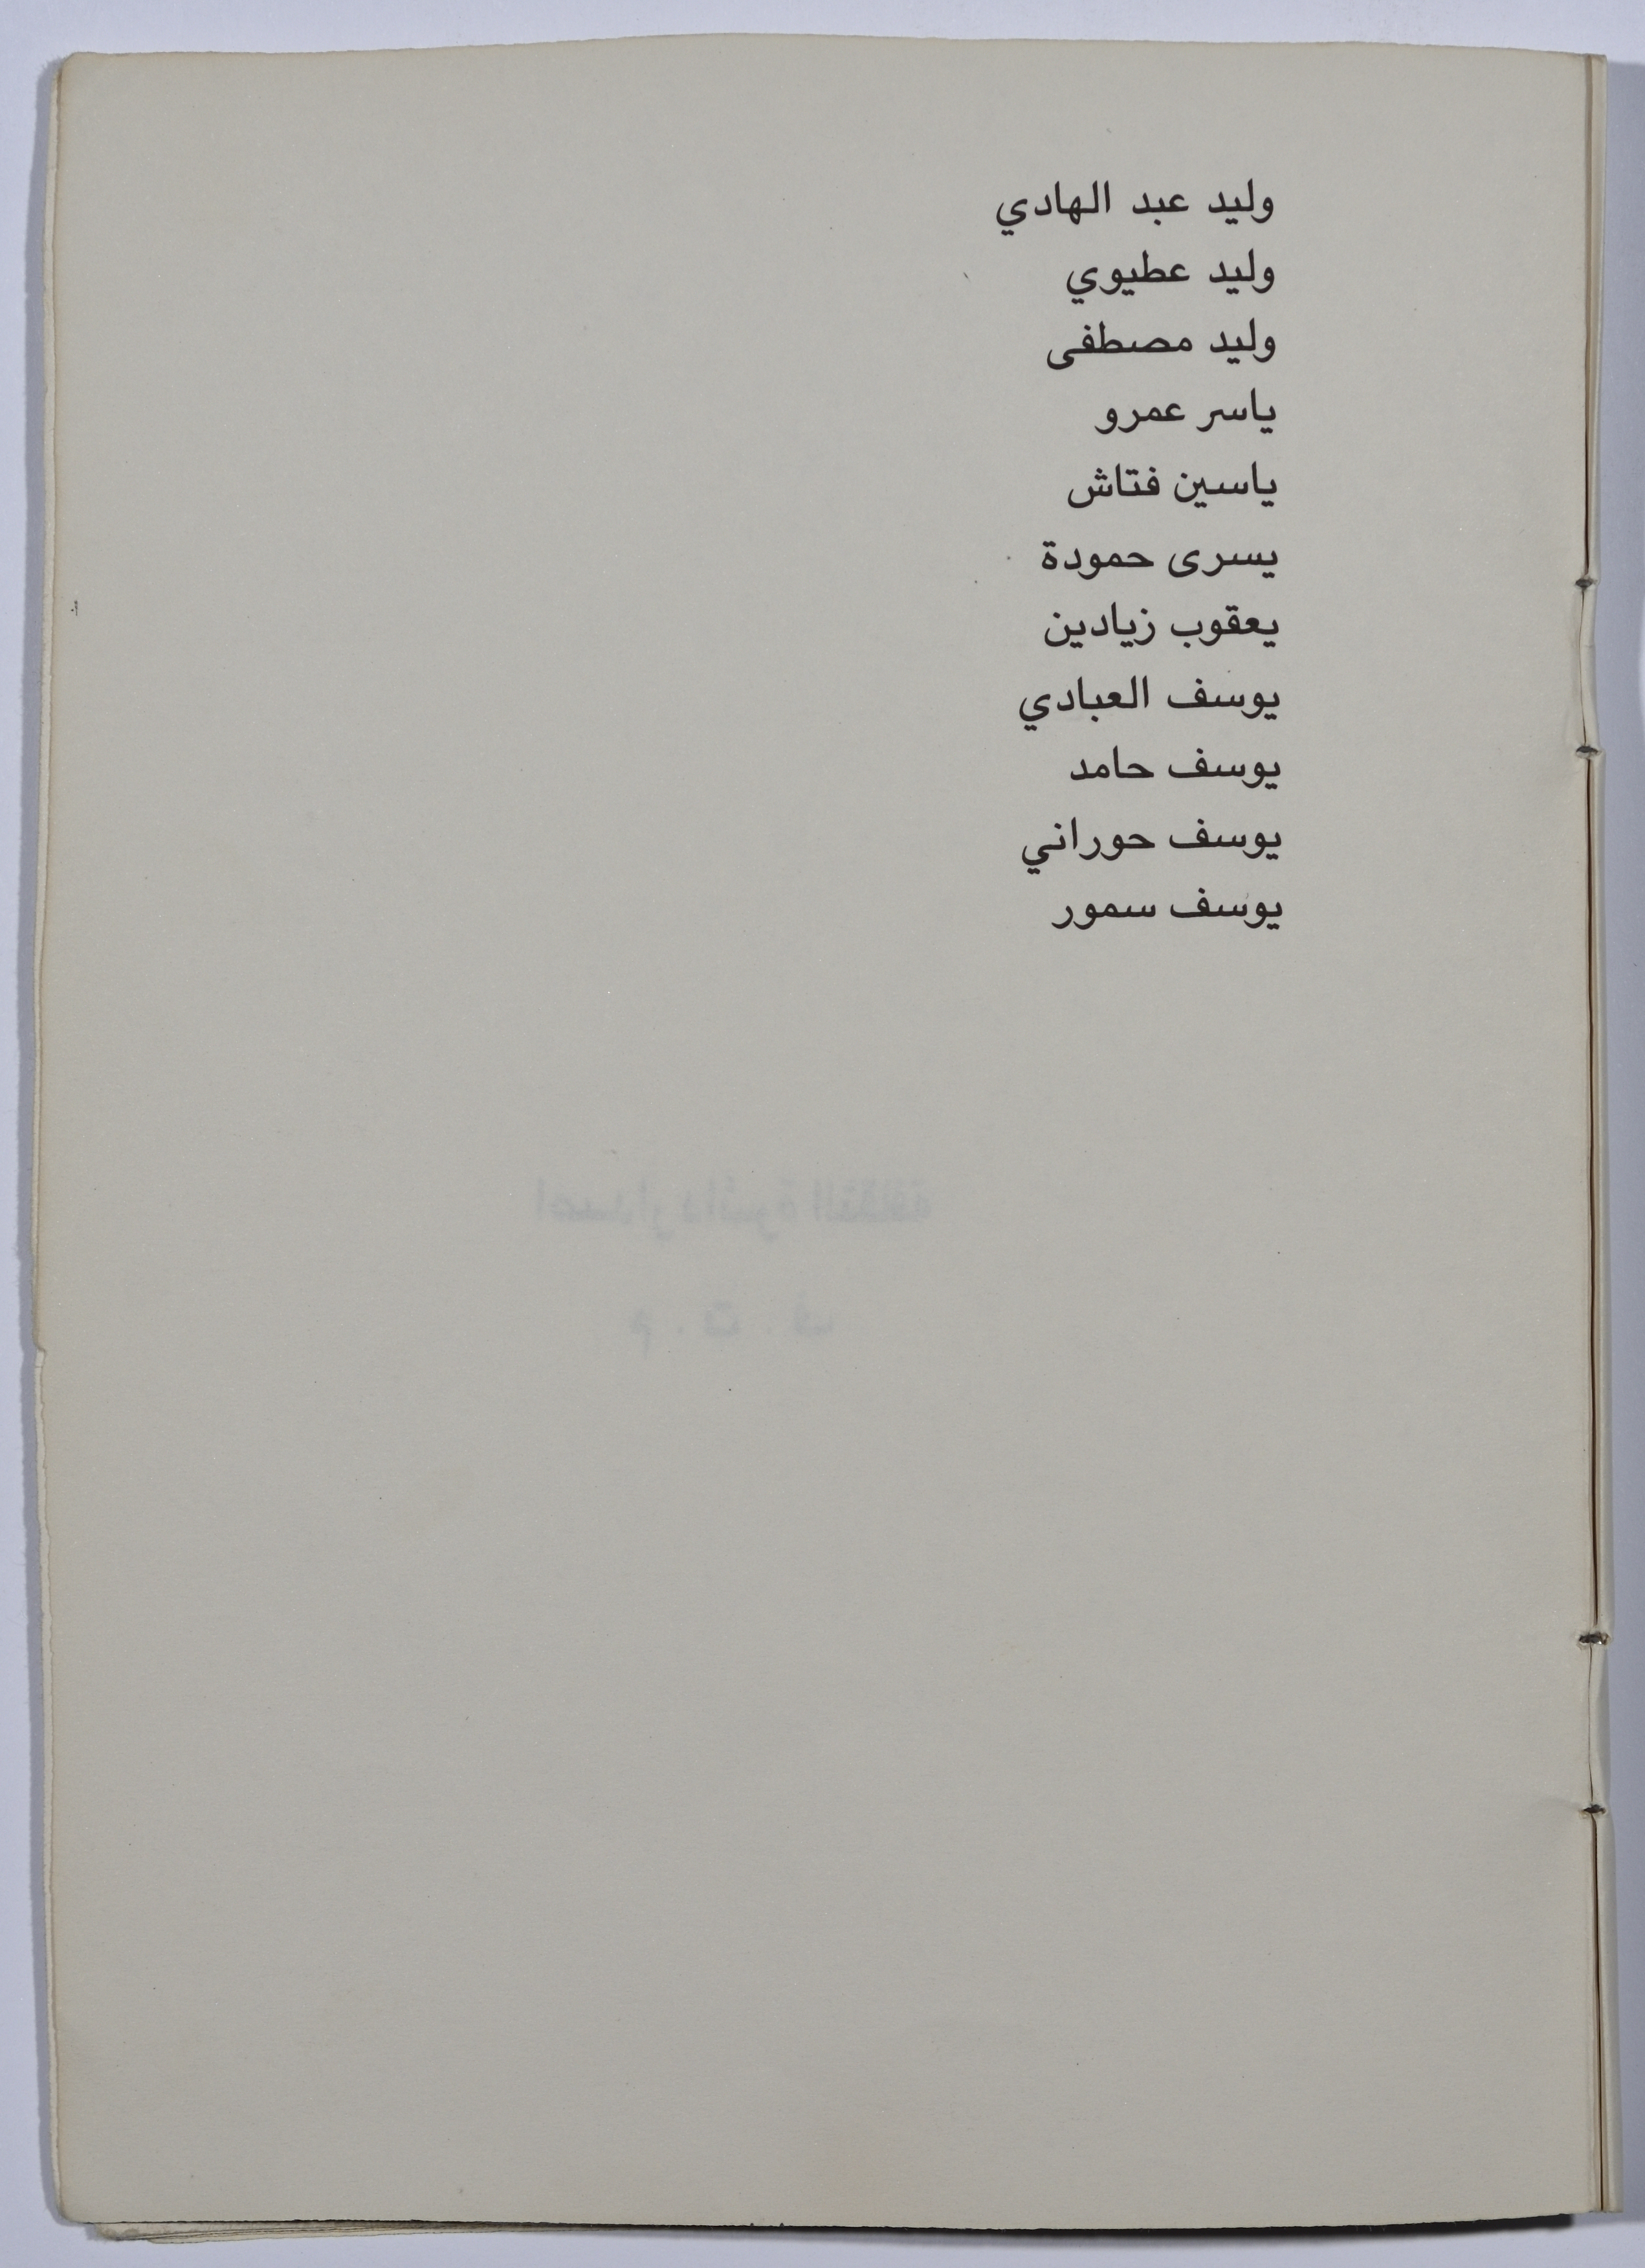 وليد عبد الهادي
وليد عطيوي
وليد مصطفى
ياسر عمرو
ياسين فتاش
يسرى حمودة
يعقوب زيادين
يوسف العبادي
يوسف حامد
يوسف حوراني
يوسف سمور
اصدار دائرة الثقافة
م . ت . ف